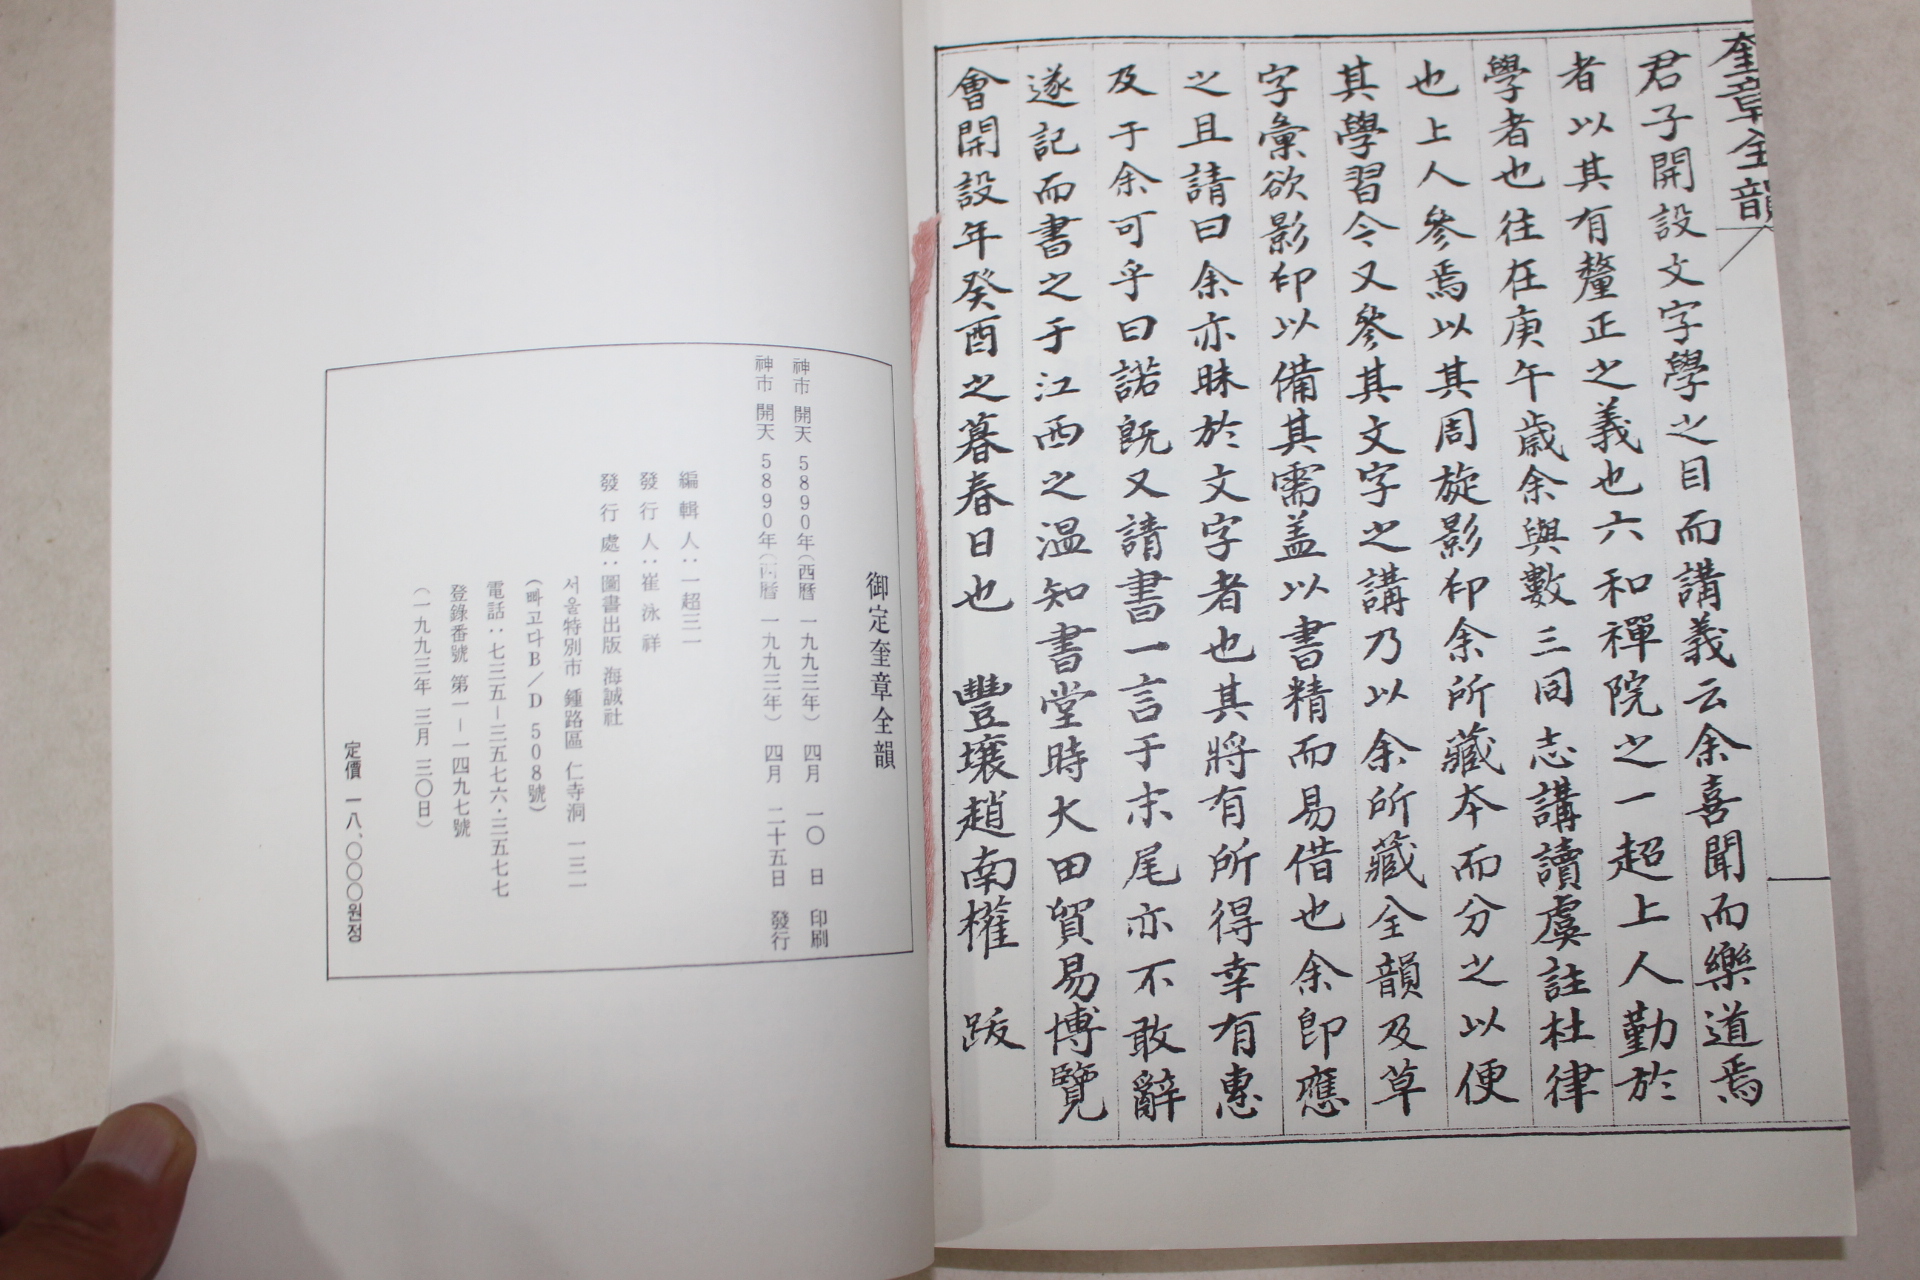 奎章全韻
君子開設文字學之目而講義云余喜聞而樂道焉
者以其有釐正之義也六和禪院之一超上人勤於
學者也往在庚午歲余與數三同志講讀虞註杜律
也上人參焉以其周旋影印余所藏本而分之以便
其學習今又參其文字之講乃以余所藏全韻及草
字彙欲影印以備其需盖以書精而易借也余即應
之且請曰余亦昧於文字者也其將有所得幸有惠
及于余可乎曰諾既又請書一言于末尾亦不敢辭
遂記而書之于江西之温知書堂時大田貿易博覽
會開設年癸酉之暮春日也 豐壤趙南權 跋
御定奎章全韻
神市 開天 5890年(西曆 一九九三年) 四月 一〇 日 印刷
神市 開天 5890年(西曆 一九九三年) 四月 二十五日 發行
編輯人:一超三一
發行人:崔泳祥
發行處:圖書出版 海誠社
서울特別市 鍾路區 仁寺洞 一三一
(빠고다B/D 508號)
電話:七三五-三五七六·三五七七
登錄番號 第一-一四九七號
(一九九三年 三月 三〇日)
定價 一八,〇〇〇원정